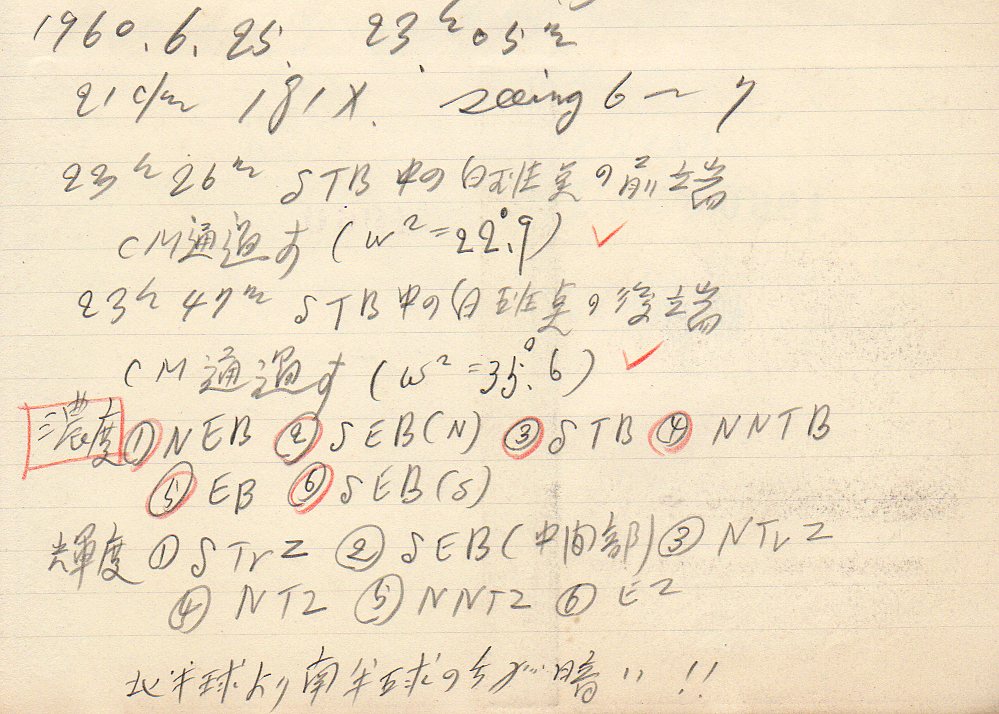 1960.6.25. 23ʰ05ᵐ
21c/m 181X. seeing 6~7
23ʰ26ᵐ STB中の白斑点の前端
CM通過す (ω²=22°.9) ✓
23ʰ47ᵐ STB中の白斑点の後端
CM通過す (ω²=35°.6) ✓
濃度 ① NEB ② SEB(N) ③ STB ④ NNTB
⑤ EB ⑥ SEB(S)
輝度 ① STrZ ② SEB(中間部) ③ NTrZ
④ NTZ ⑤ NNTZ ⑥ EZ
北半球より南半球の方が暗い!!